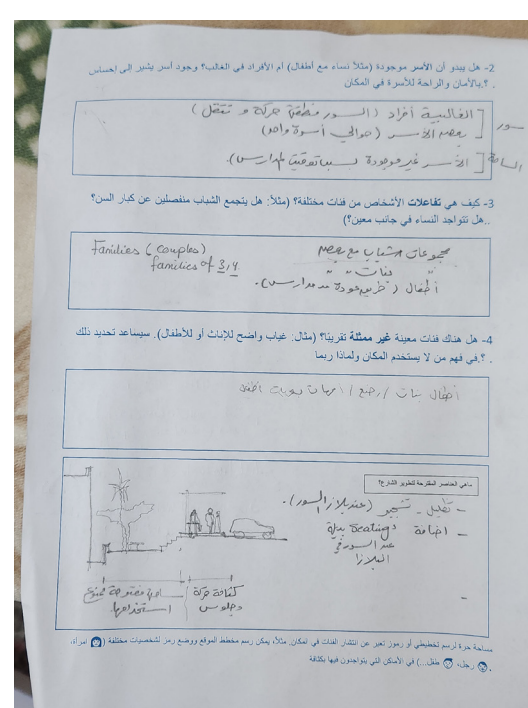 2- هل يبدو أن الأسر موجودة (مثلاً نساء مع أطفال) أم الأفراد في الغالب؟ وجود أسر يشير الى إحساس
. ؟.بالأمان والراحة للأسرة في المكان
سور
الغالبية أفراد (السور منطقة حركة و تنقل)
بعض الأسر (حوالي أسرة واحدة)
الساحة
الأسر غير موجودة بسبب توقيت المدارس.
3- كيف هي تفاعلات الأشخاص من فئات مختلفة؟ (مثلاً: هل يتجمع الشباب منفصلين عن كبار السن؟
..هل تتواجد النساء في جانب معين؟)
مجموعات الشباب مع بعض
" فتات " "
أطفال (طريق عودة من مدارس).
Families (couples)
families of 3,4
4- هل هناك فئات معينة غير ممثلة تقريبًا؟ (مثال: غياب واضح للإناث أو للأطفال). سيساعد تحديد ذلك
. ؟.في فهم من لا يستخدم المكان ولماذا ربما
أطفال بنات / رضع / امهات
ماهي العناصر المقترحة لتطوير الشارع؟
- تظليل - تشجير (عند بلازا السور).
- اضافة Seatings بديلة
عند السور في
البلازا
-
كثافة حركة
وجلوس
مفتوحة ممنوع
استخدامها.
مساحة حرة لرسم تخطيطي أو رموز تعبر عن انتشار الفئات في المكان. مثلاً، يمكن رسم مخطط الموقع ووضع رمز لشخصيات مختلفة ( امرأة،
. رجل، طفل...) في الأماكن التي يتواجدون فيها بكثافة